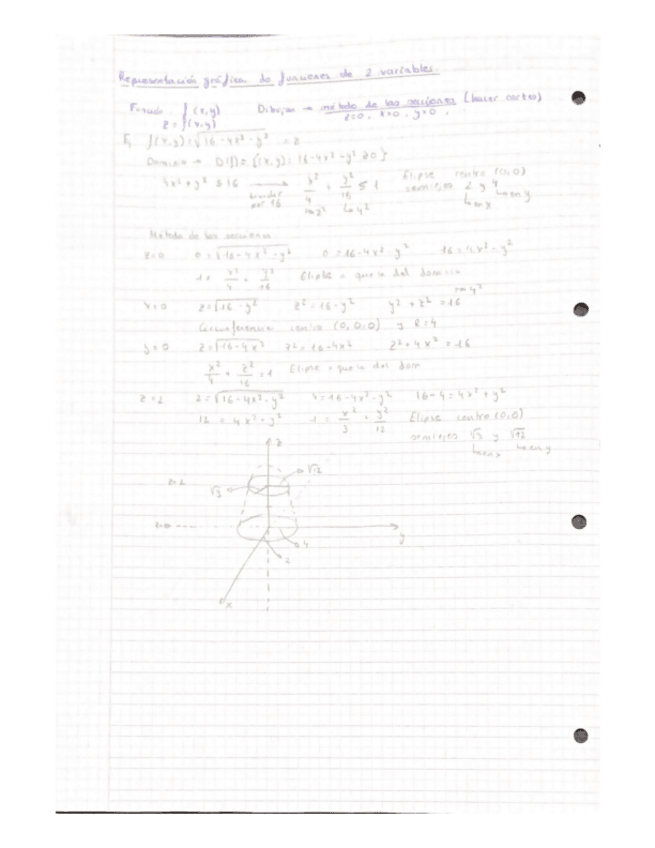 Representación gráfica de funciones de 2 variables.
Función f(x,y) Dibujar → método de las secciones (hacer cortes)
z = f(x,y) z=0, x=0, y=0,
Ej f(x,y) = √16-4x²-y² = z
Dominio → D(f) = {(x,y): 16-4x²-y² ≥ 0}
4x² + y² ≤ 16 → x²/4 + y²/16 ≤ 1 Elipse centro (0,0)
dividir por 16 ↳ 2² ↳ 4² semiejes 2 y 4
↳ en x ↳ en y
Método de las secciones
z=0 0 = √16-4x²-y² 0 = 16-4x²-y² 16 = 4x²+y²
1 = x²/4 + y²/16 Elipse = que la del dominio
x=0 z = √16-y² z² = 16-y² y² + z² = 16 → 4²
Circunferencia centro (0,0,0) y R=4
y=0 z = √16-4x² z² = 16-4x² z² + 4x² = 16
x²/4 + z²/16 = 1 Elipse = que la del dom
z=2 2 = √16-4x²-y² 4 = 16-4x²-y² 16-4 = 4x²+y²
12 = 4x²+y² 1 = x²/3 + y²/12 Elipse centro (0,0)
semiejes √3 y √12
↳ en x ↳ en y
z
z=2 √3 √12
z=0 4 y
2
x